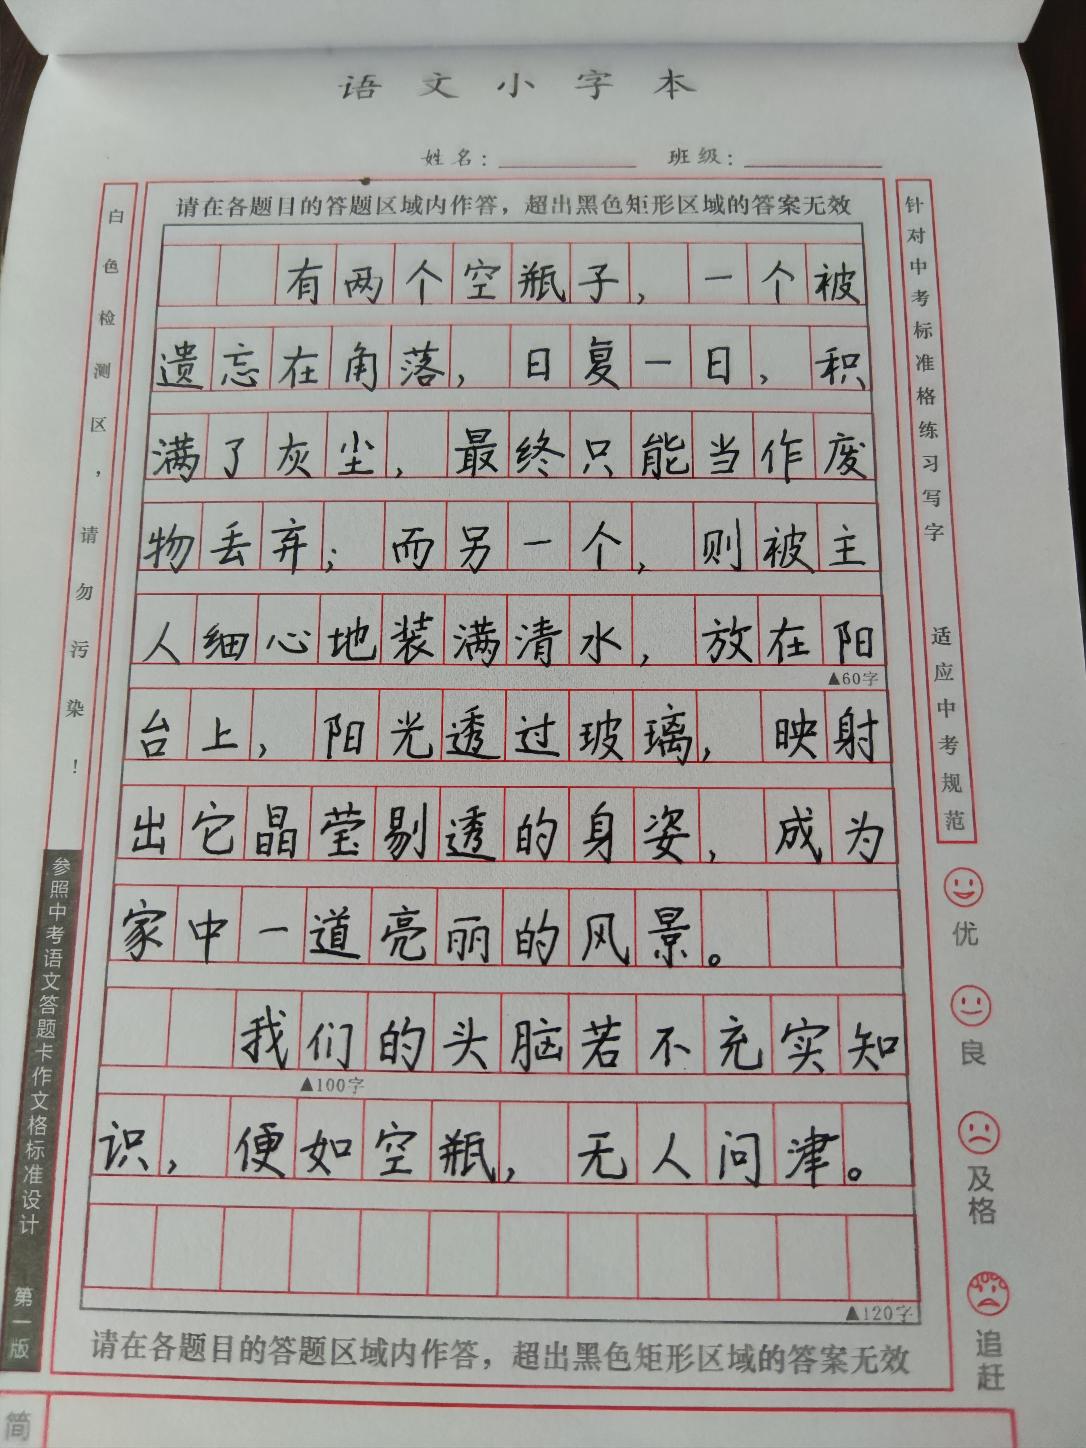 语文小字本
姓名：
班级：
请在各题目的答题区域内作答，超出黑色矩形区域的答案无效
有两个空瓶子，一个被
遗忘在角落，日复一日，积
满了灰尘，最终只能当作废
物丢弃；而另一个，则被主
人细心地装满清水，放在阳
▲60字
台上，阳光透过玻璃，映射
出它晶莹剔透的身姿，成为
家中一道亮丽的风景。
我们的头脑若不充实知
▲100字
识，便如空瓶，无人问津。
▲120字
请在各题目的答题区域内作答，超出黑色矩形区域的答案无效
白色检测区，请勿污染！
参照中考语文答题卡作文格标准设计 第一版
针对中考标准格练习写字 适应中考规范
优
良
及格
追赶
简